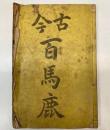 古今
百馬鹿